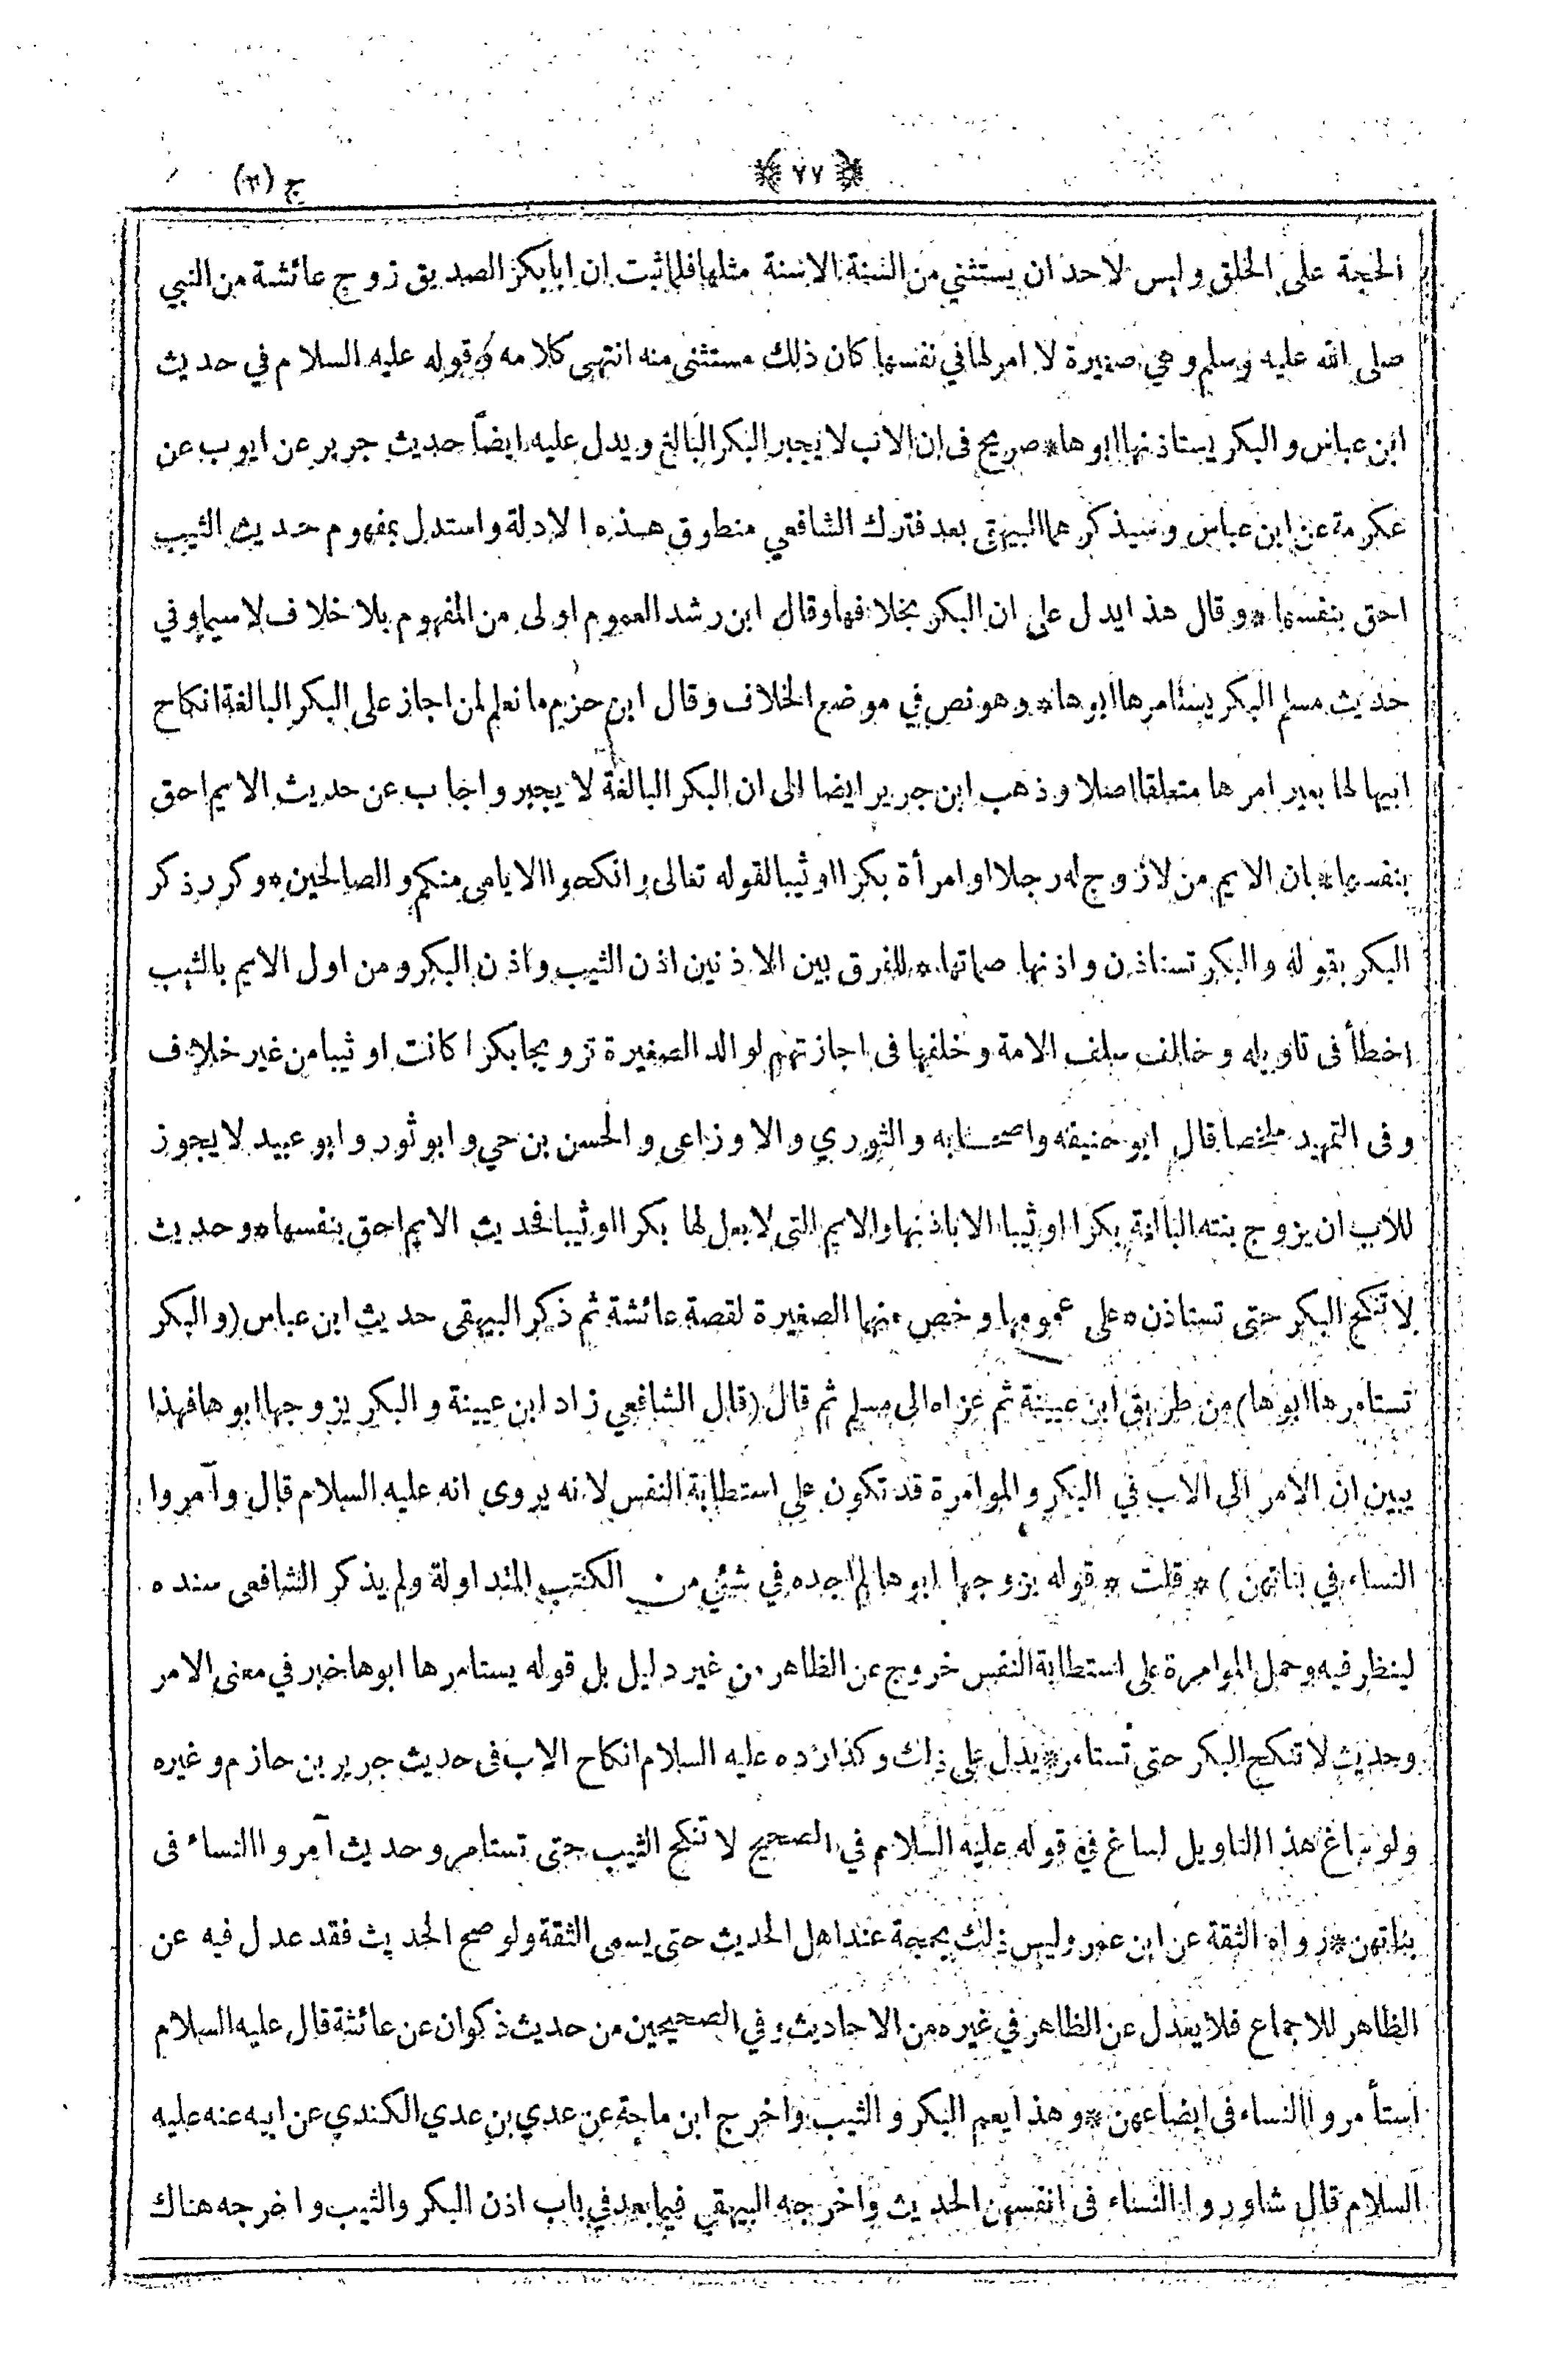 ﴿ ٧٧ ﴾
ج (٢)
الحجة على الخلق وليس لاحد ان يستثني من السنة الاسنة مثلها فلما ثبت ان ابا بكر الصديق زوج عائشة من النبي
صلى الله عليه وسلم وهي صغيرة لا امر لها في نفسها كان ذلك مستثنى منه انتهى كلامه وقوله عليه السلام في حديث
ابن عباس والبكر يستاذنها ابوها * صريح في ان الاب لا يجبر البكر البالغ ويدل عليه ايضاً حديث جرير عن ايوب عن
عكرمة عن ابن عباس وسيذكرهما البيهقي بعد فترك الشافعي منطوق هذه الادلة واستدل بمفهوم حديث الثيب
احق بنفسها * وقال هذا يدل على ان البكر بخلافها وقال ابن رشد العموم اولى من المفهوم بلا خلاف لاسيما وفي
حديث مسلم البكر يستامرها ابوها * وهو نص في موضع الخلاف وقال ابن حزم ما نعلم لمن اجاز على البكر البالغة انكاح
ابيها لها بغير امرها متعلقا اصلا وذهب ابن جرير ايضا الى ان البكر البالغة لا يجبر واجاب عن حديث الايم احق
بنفسها * بان الايم من لا زوج له رجلا او امرأة بكرا او ثيبا لقوله تعالى وانكحوا الايامى منكم والصالحين * وكرر ذكر
البكر بقوله والبكر تستاذن واذنها صماتها * للفرق بين الاذنين اذن الثيب واذن البكر ومن اول الايم بالثيب
اخطأ في تاويله وخالف سلف الامة وخلفها في اجازتهم لوالد الصغيرة تزويجها بكرا كانت او ثيبا من غير خلاف
وفي التمهيد ملخصا قال ابو حنيفه واصحابه والثوري والاوزاعي والحسن بن حي وابو ثور وابو عبيد لا يجوز
للاب ان يزوج بنته البالغة بكرا او ثيبا الا باذنها والايم التي لا بعل لها بكرا او ثيبا فحديث الايم احق بنفسها * وحديث
لا تنكح البكر حتى تستاذن * على عمومها وخص منها الصغيرة لقصة عائشة ثم ذكر البيهقي حديث ابن عباس (والبكر
تستامرها ابوها) من طريق ابن عيينة ثم عزاه الى مسلم ثم قال (قال الشافعي زاد ابن عيينة والبكر يزوجها ابوها فهذا
يبين ان الامر الى الاب في البكر والموامرة قد تكون على استطابة النفس لانه يروى انه عليه السلام قال وآمروا
النساء في بناتهن) * قلت * قوله يزوجها ابوها لم اجده في شيئ من الكتب المتداولة ولم يذكر الشافعي سنده
لينظر فيه وحمل الموامرة على استطابة النفس خروج عن الظاهر من غير دليل بل قوله يستامرها ابوها خبر في معنى الامر
وحديث لا تنكح البكر حتى تستامر * يدل على ذلك وكذا رده عليه السلام انكاح الاب في حديث جرير بن حازم وغيره
ولو ساغ هذا التاويل لساغ في قوله عليه السلام في الصحيح لا تنكح الثيب حتى تستامر وحديث آمروا النساء في
بناتهن * رواه الثقة عن ابن عمر وليس ذلك بحجة عند اهل الحديث حتى يسمى الثقة ولو صح الحديث فقد عدل فيه عن
الظاهر للاجماع فلا يعدل عن الظاهر في غيره من الاحاديث وفي الصحيحين من حديث ذكوان عن عائشة قال عليه السلام
استأمروا النساء في ابضاعهن * وهذا يعم البكر والثيب واخرج ابن ماجة عن عدي بن عدي الكندي عن ابيه عنه عليه
السلام قال شاوروا النساء في انفسهن الحديث واخرجه البيهقي فيما بعد في باب اذن البكر والثيب واخرجه هناك